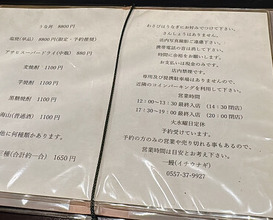 うな丼 8800円
塩焼(単品) 8800円(限定・予約優先)
アサヒスーパードライ(中瓶) 880円
麦焼酎 1100円
芋焼酎 1100円
黒糖焼酎 1100円
1100円
他に何種類かあります。
1650円
わさびはうなぎにお好みでつけて下さい。
さんしょうはありません。
店内写真撮影ご遠慮下さい。
携帯電話の方は外に出て下さい。
他のお客様に会釈をお願いします。
お支払いは現金のみです。
店内禁煙です。
専用及び提携駐車場はありませんので、
近隣のコインパーキングを利用して下さい。
営業時間
12:00〜13:30 最終入店 (14:30 閉店)
17:00〜19:30 最終入店 (20:30 閉店)
火水曜日定休
予約受けています。
予約の方のみの営業や売り切れる事もあるので、
営業時間は目安とお考え下さい。
0557-37-9927